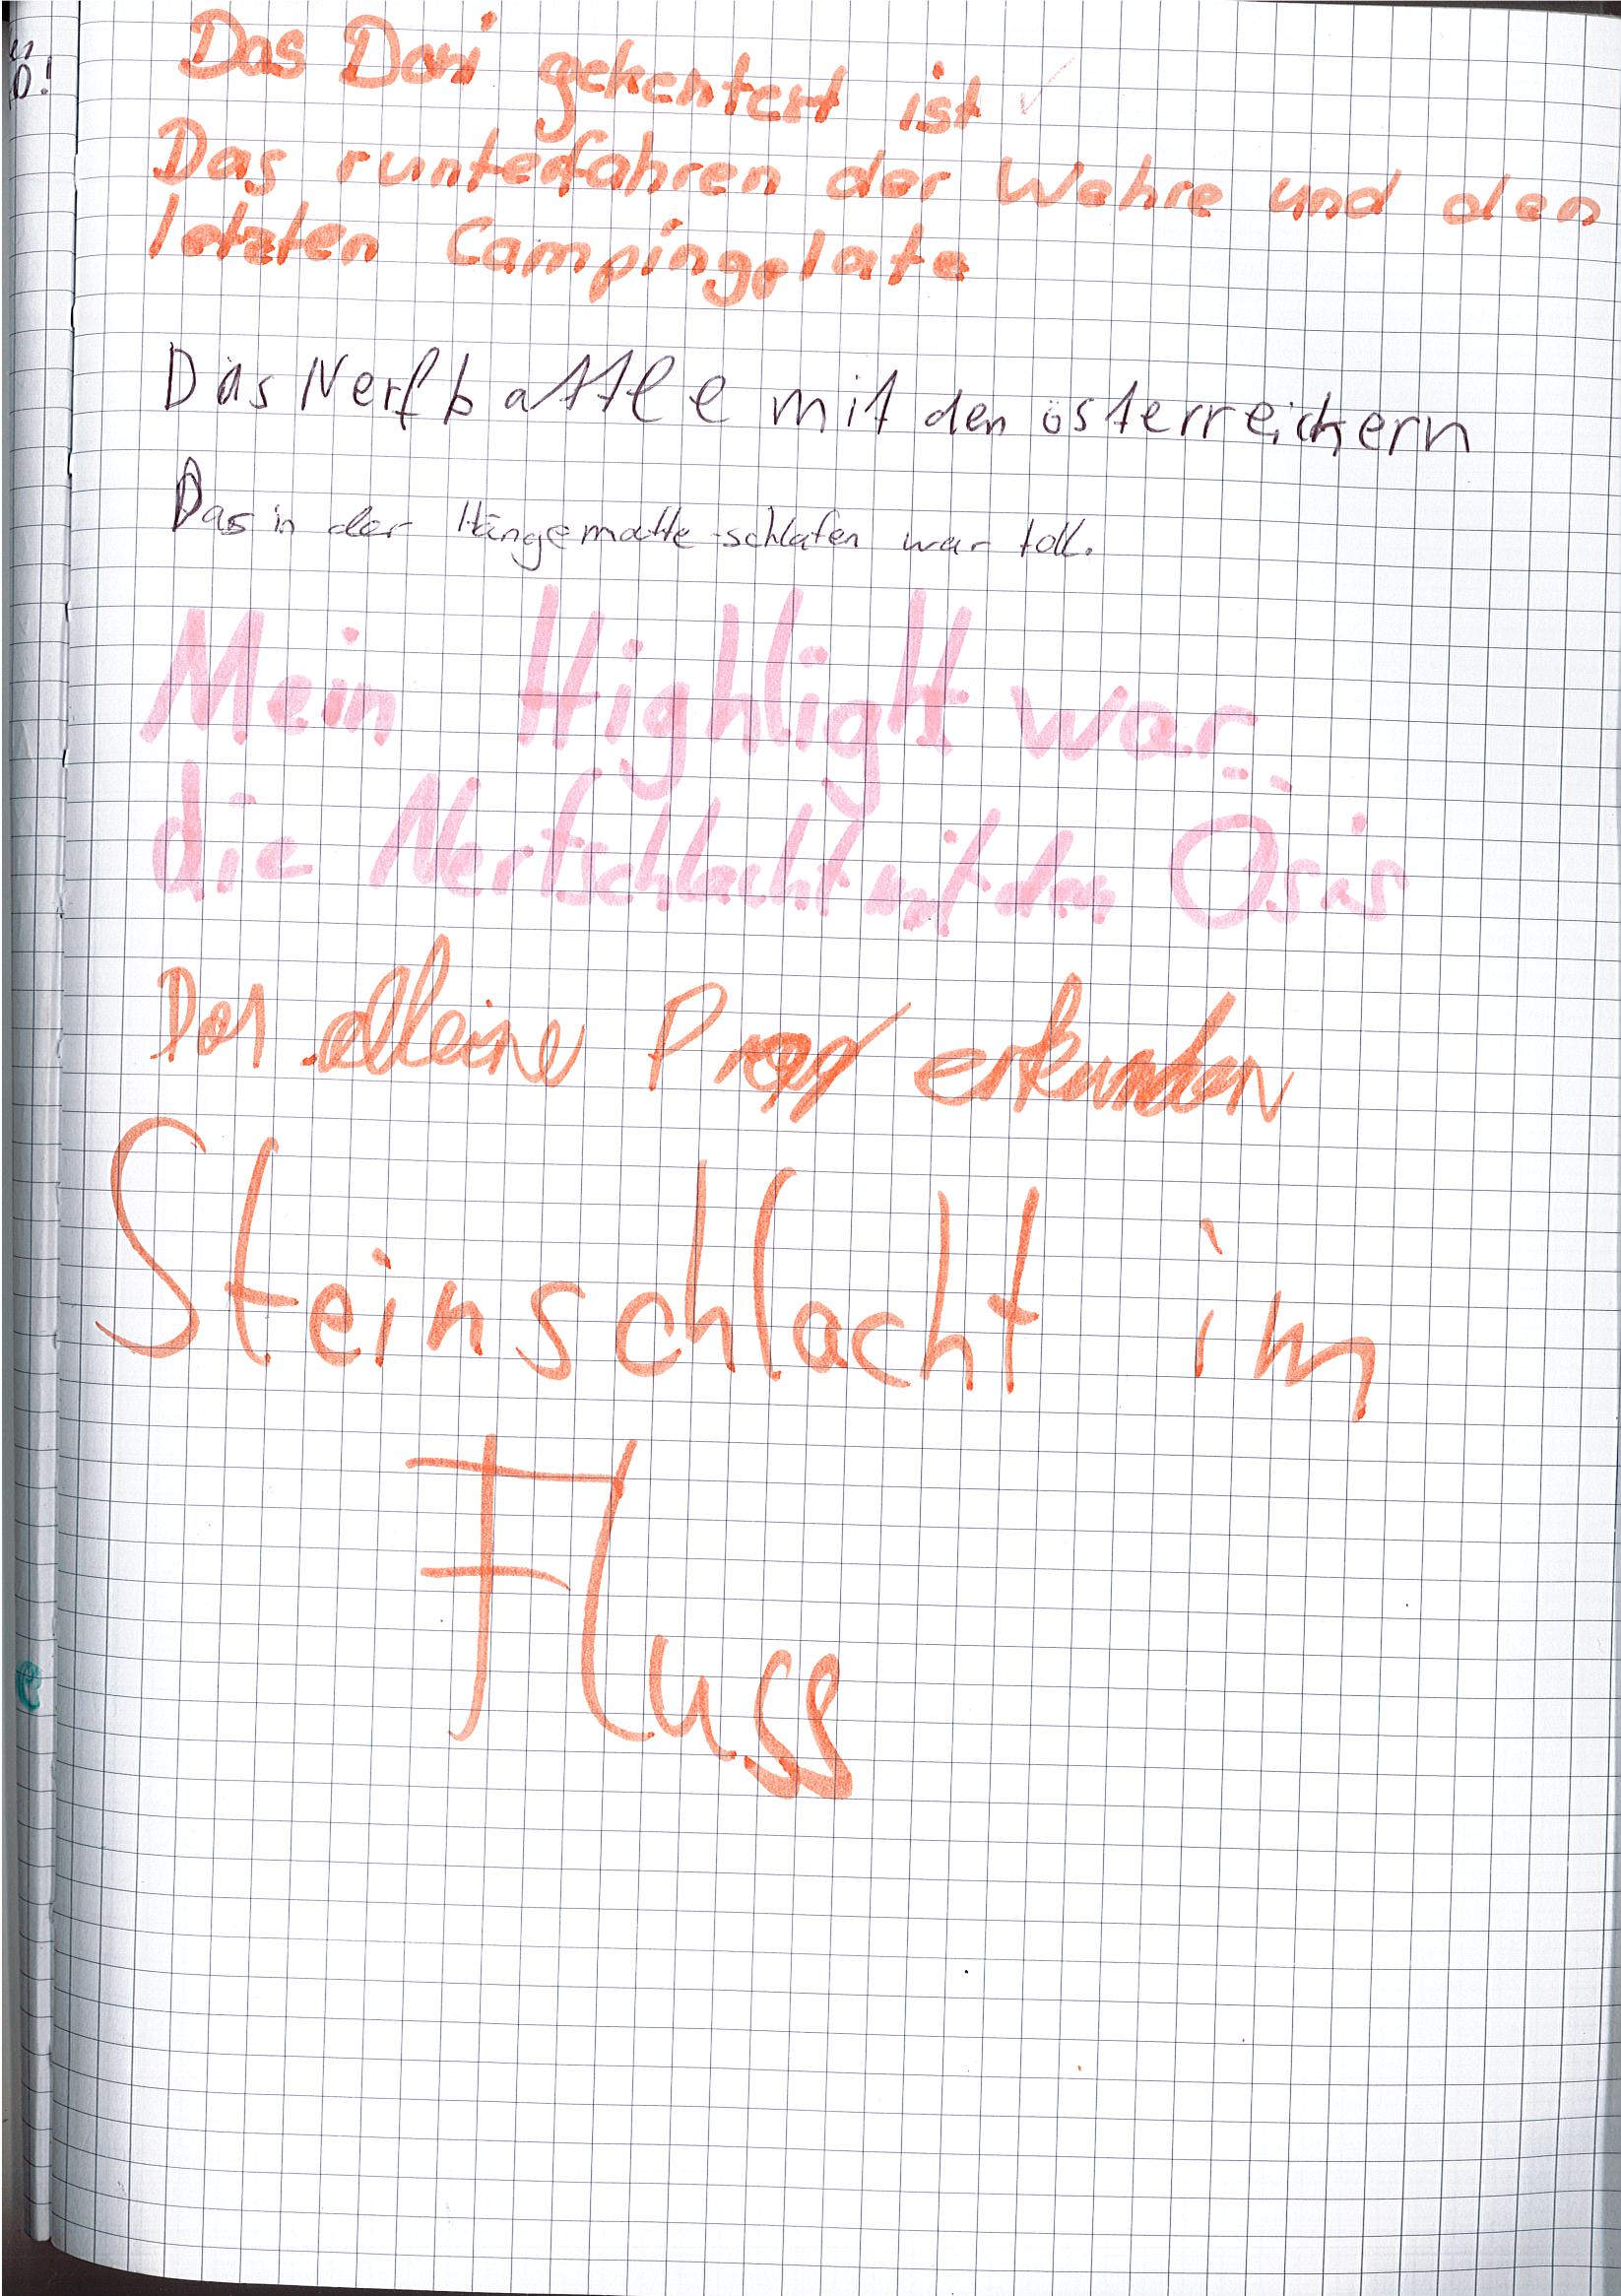 Das Dari gekentert ist
Das runterfahren der Wehre und den
letzten Campingplatz
Das Nerfbattle mit den österreichern
Das in der Hängematte schlafen war toll.
Mein Highlight war
die Nerfschlacht mit den Ösis
Das alleine Prag erkunden
Steinschlacht im
Fluss